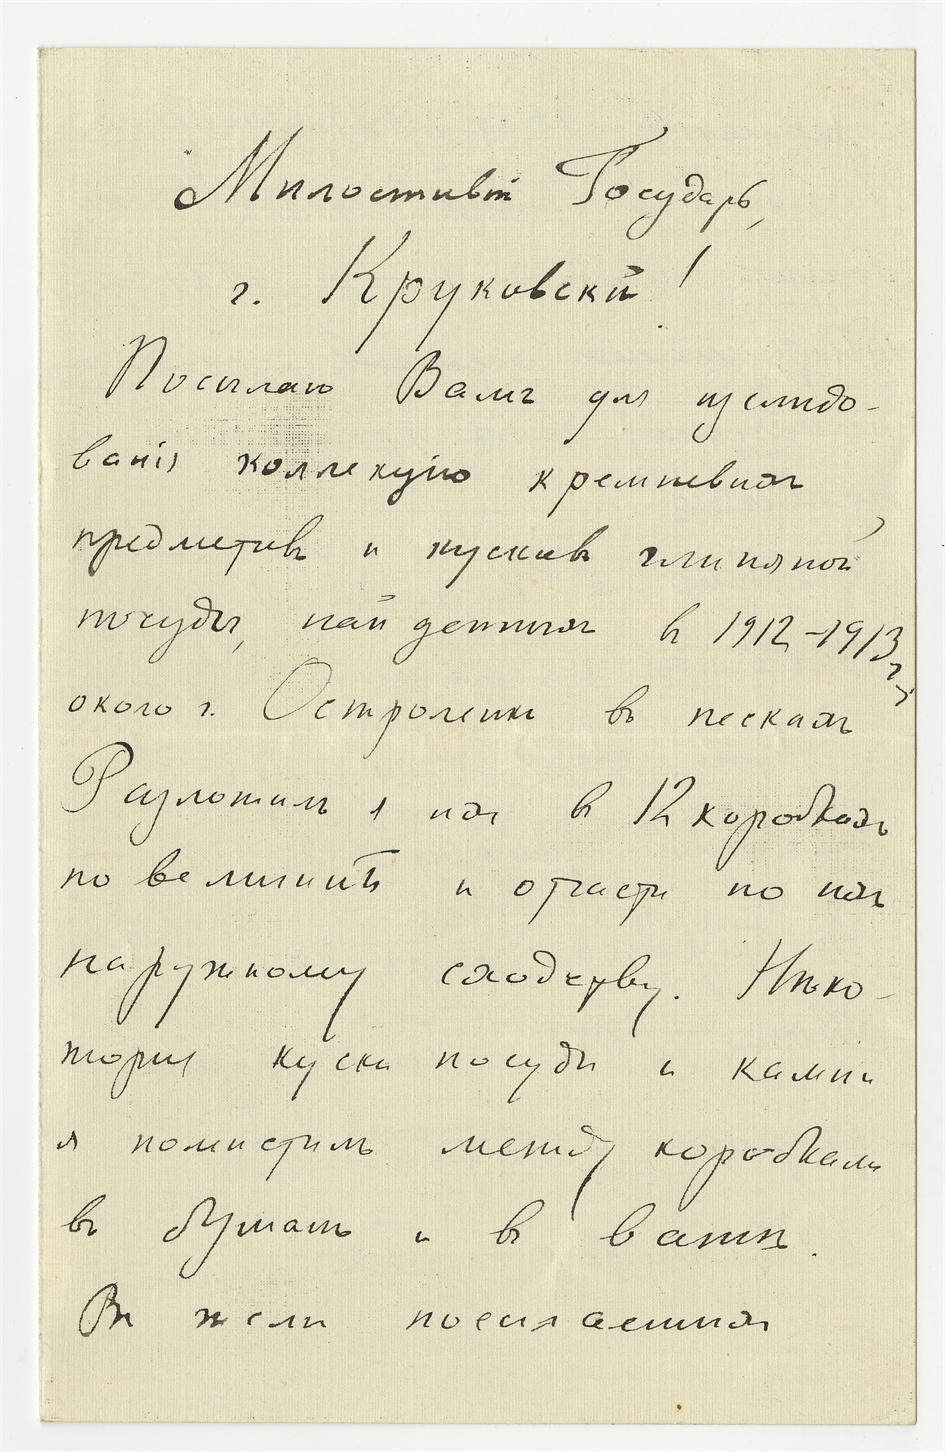 Милостивый Государь,
г. Круковскій!
Посылаю Вамъ для изслѣдо-
ванія коллекцію кремневыхъ
предметовъ и кусковъ глиняной
посуды, найденныхъ въ 1912-1913 г.
около г. Остроленки въ пескахъ
Разложилъ я ихъ въ 12 коробкахъ
по величинѣ и отчасти по ихъ
наружному сходству. Нѣко-
торыя куски посуды и камни
я помѣстилъ между коробками
въ бумагѣ и въ ватѣ.
посылаемыхъ